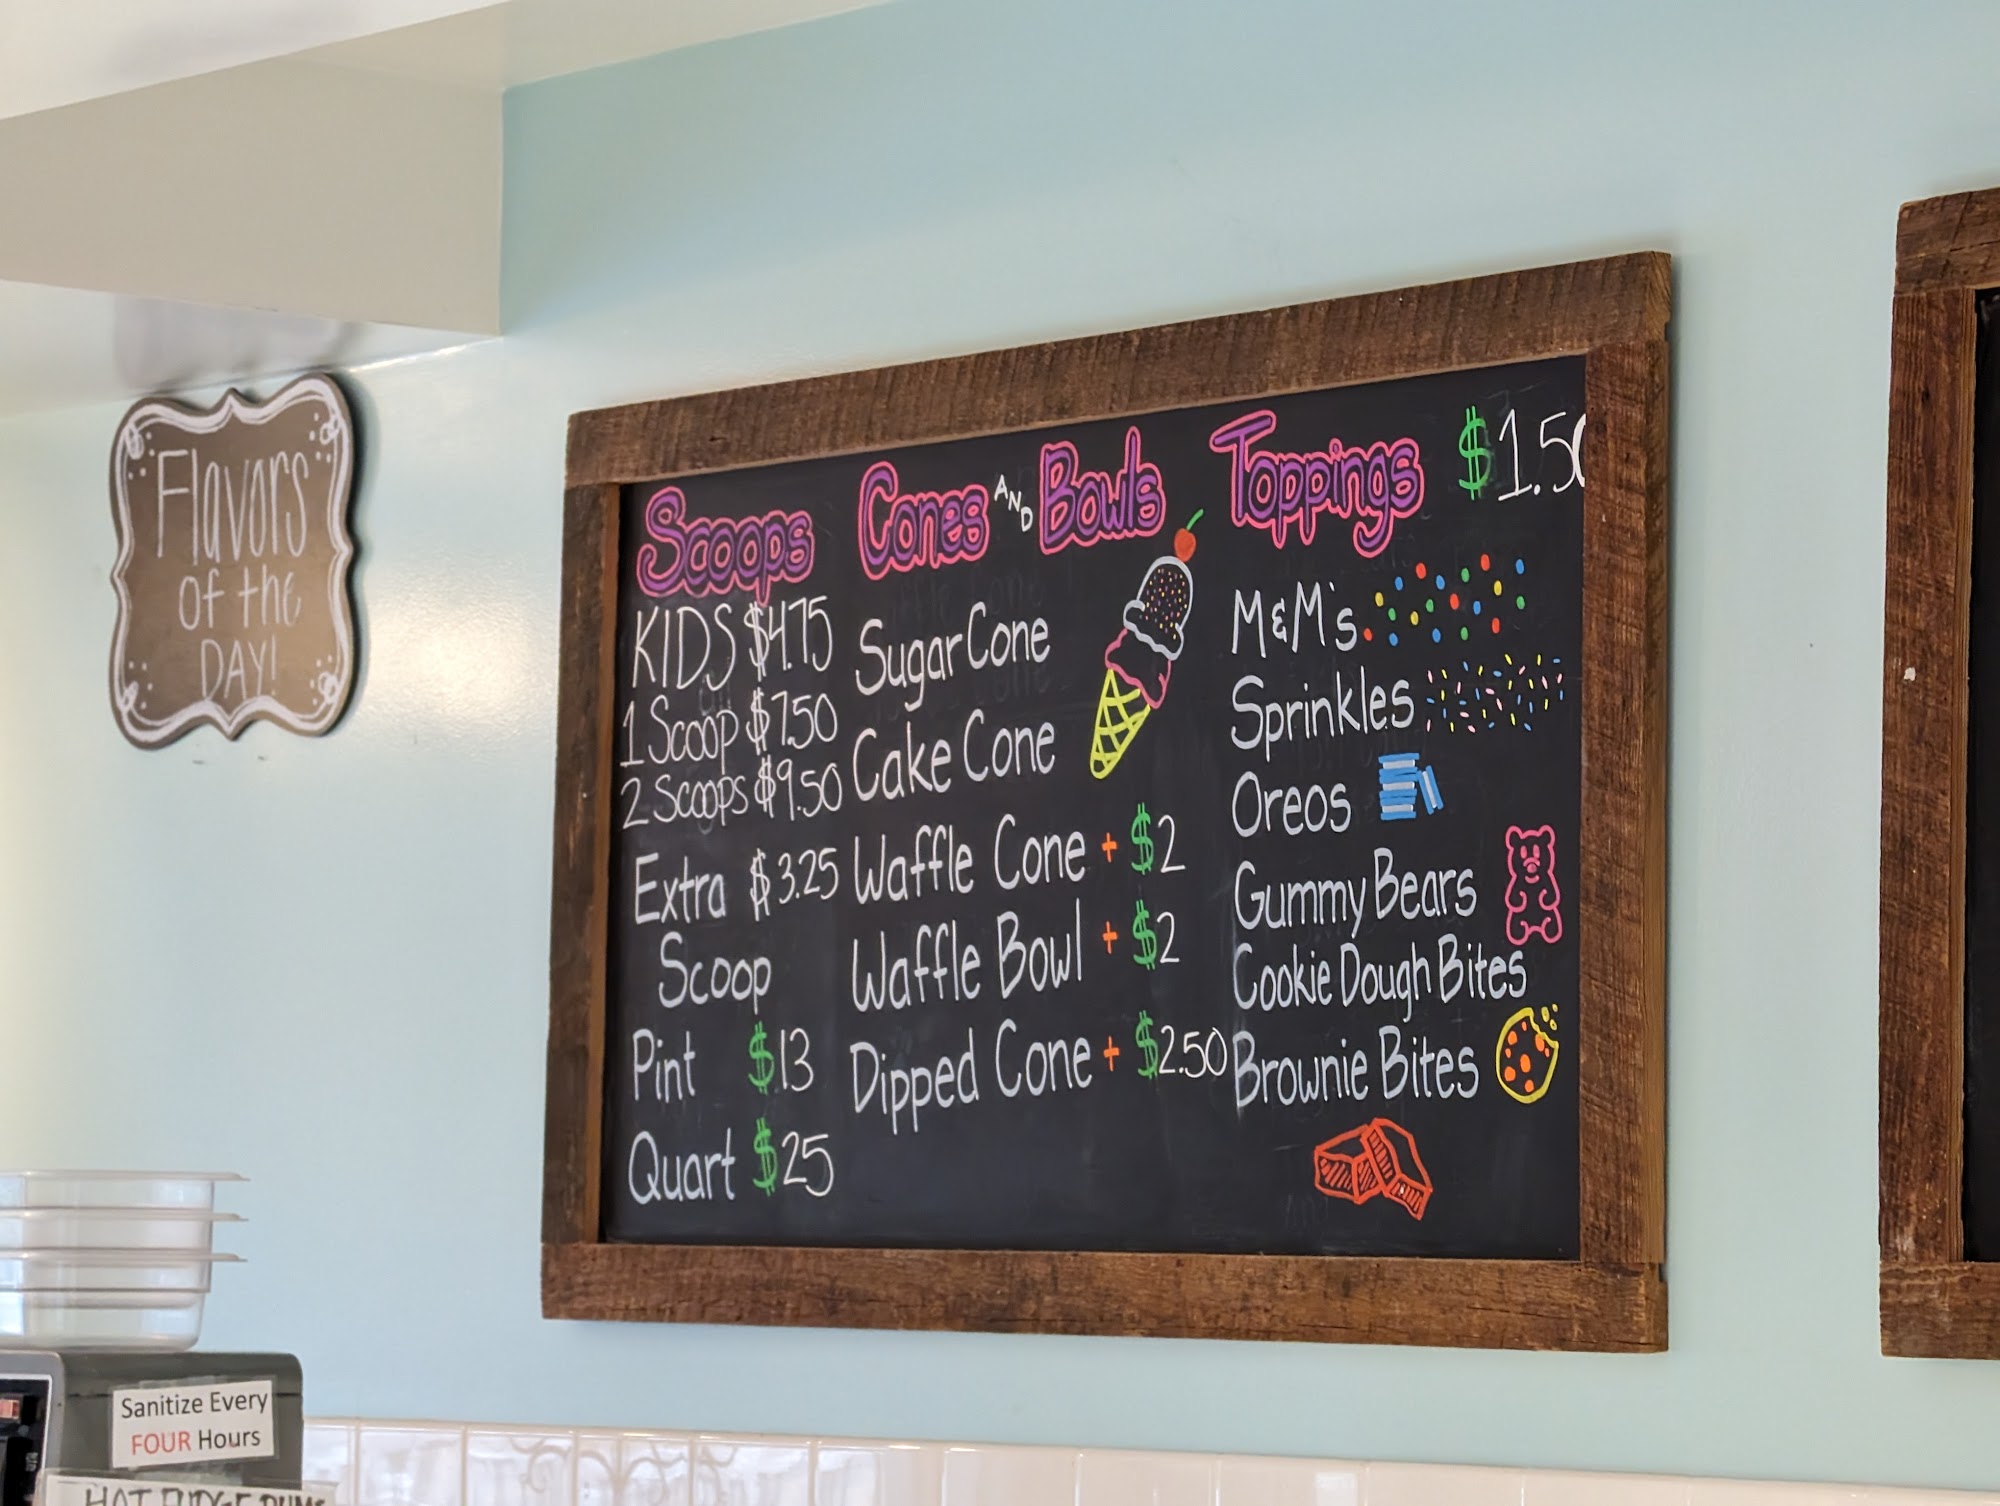 Flavors
of the
DAY!
Scoops
KIDS $4.75
1 Scoop $7.50
2 Scoops $9.50
Extra $3.25
Scoop
Pint $13
Quart $25
Cones AND Bowls
Sugar Cone
Cake Cone
Waffle Cone + $2
Waffle Bowl + $2
Dipped Cone + $2.50
Toppings $1.50
M&M's
Sprinkles
Oreos
Gummy Bears
Cookie Dough Bites
Brownie Bites
Sanitize Every
FOUR Hours
HOT FUDGE